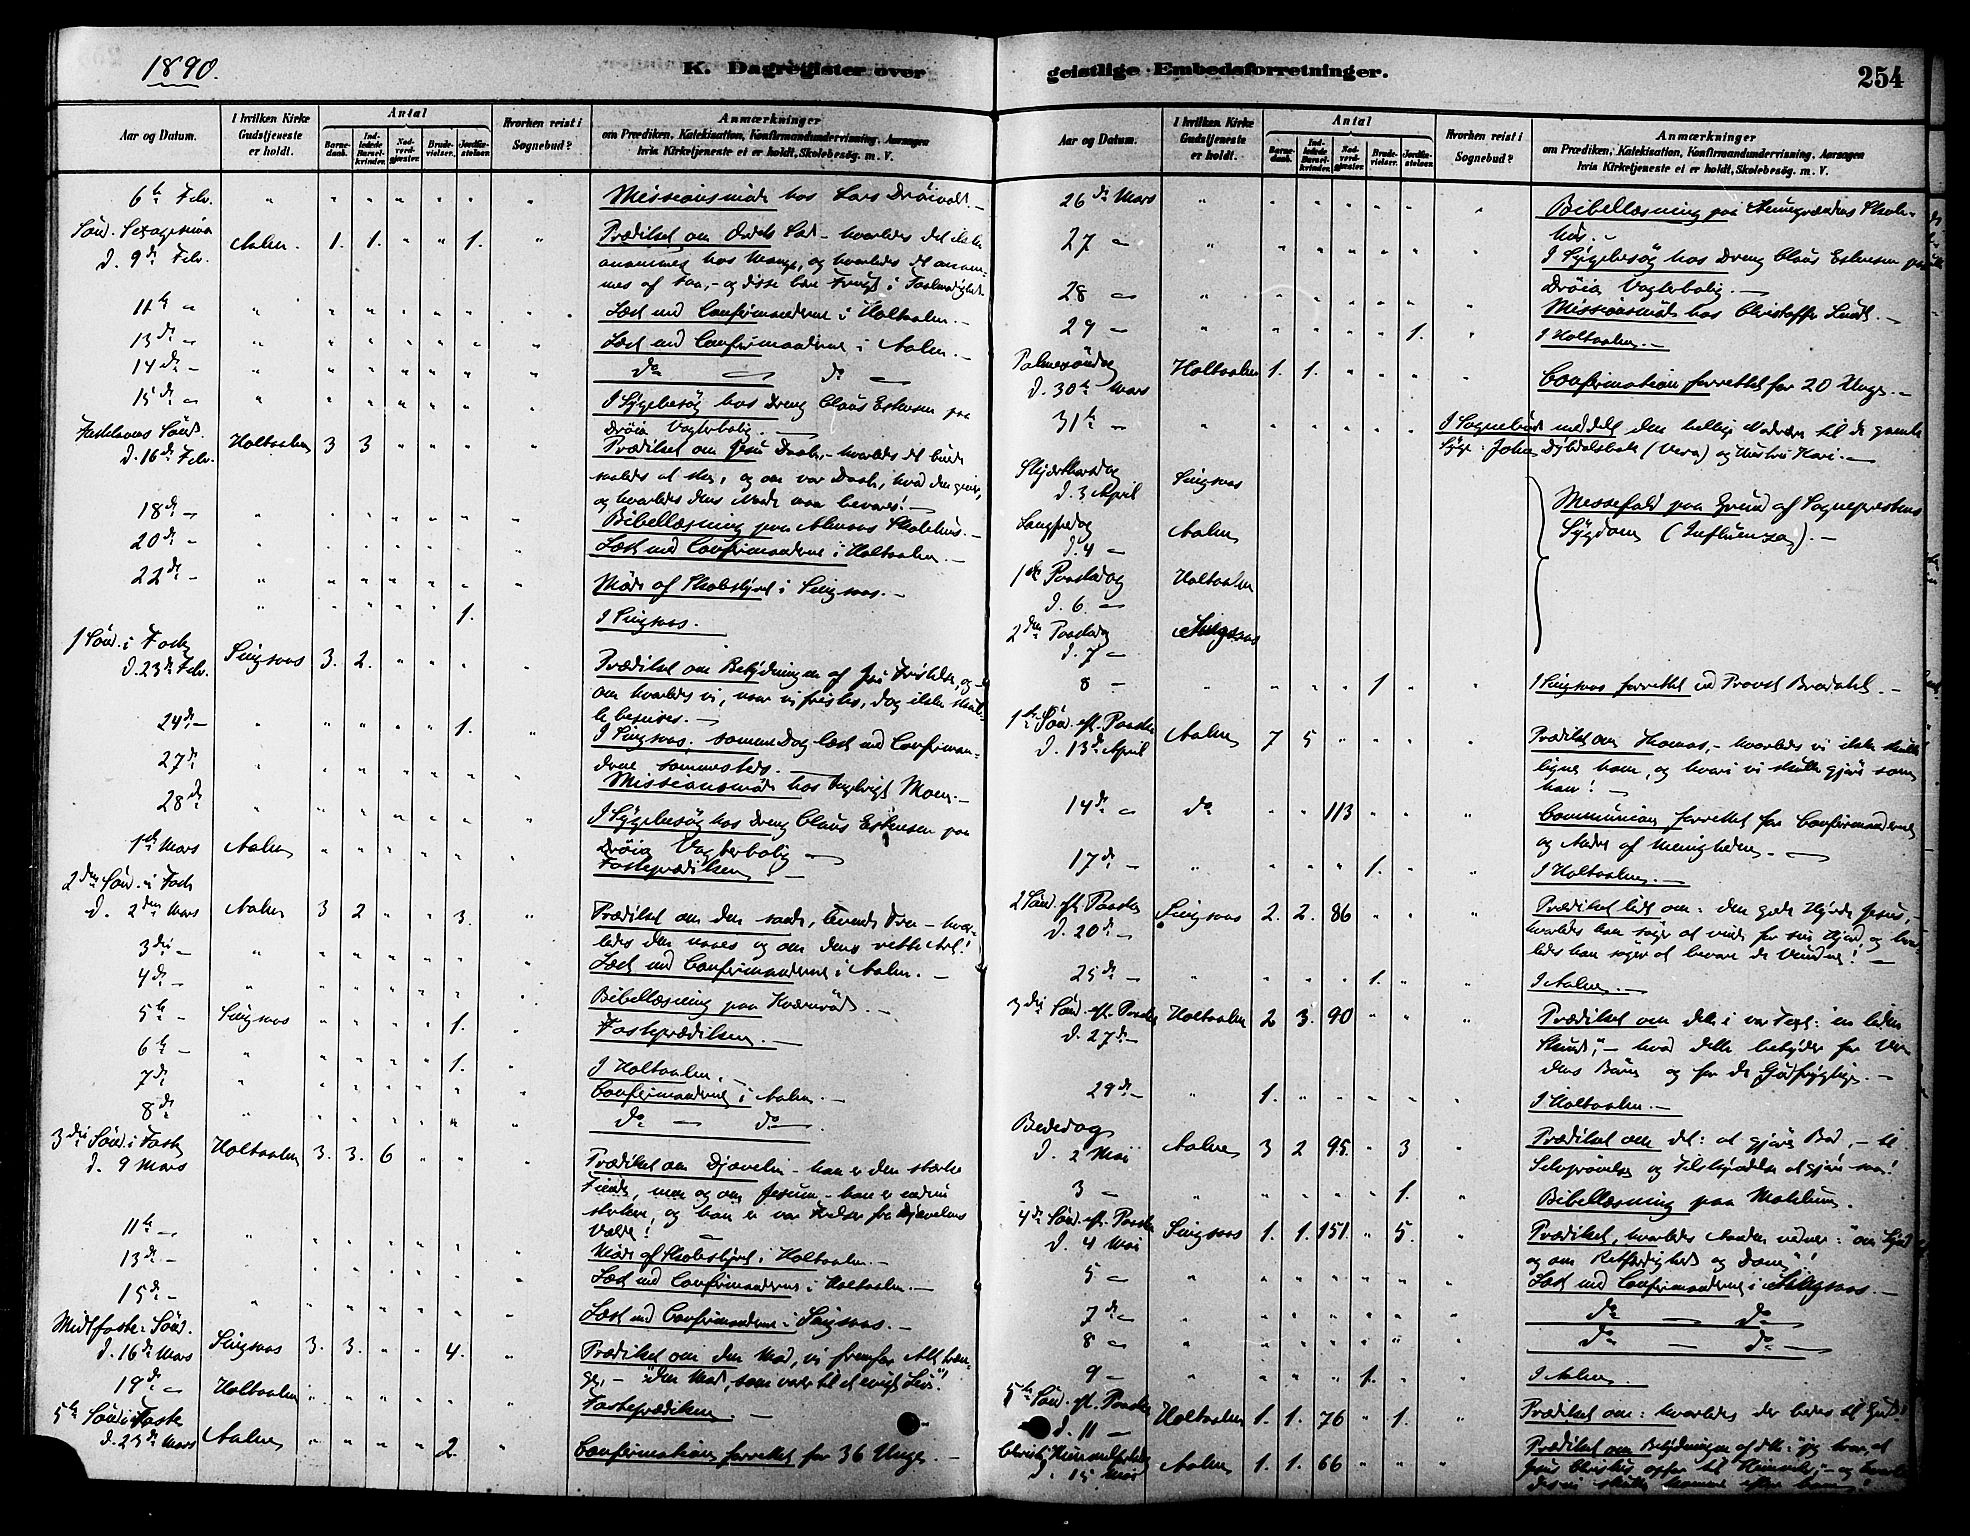 1890.
K. Dagregister over
Aar og Datum.
I hvilken Kirke Gudstjeneste er holdt.
Antal
Barnedaab.
Indledede Barselkvinder.
Nadverdgjæster.
Brudevielser.
Jordfæstelser.
Hvorhen reist i Sognebud?
Anmærkninger
om Prædiken, Katekisation, Konfirmandundervisning, Aarsagen
hvis Kirketjeneste ei er holdt, Skolebesøg. m. V.
6te Febr. " " " " " " " Missionsmøde hos Lars
Sønd. Sexagesima
d. 9de Febr. Aalen. 1. 1. " " 1. " Prædiket om Ordets Sæd - hvorledes det ikke
annammes hos Mange, og hvorledes det annammes
af Faa, - og disse bære Frugt i Taalmodighed.
11te " Læst med Confirmanderne i Holtaalen. -
13de - Læst med Confirmanderne i Aalen. -
14de - do do
15de - I Sygebesøg hos Dreng Claus Estensen paa
Drøia Vogterbolig. -
Fastelavns Sønd.
d. 16de Febr. Holtaalen 3 3 Prædiket om Jesu Daab, - hvorledes det burde
og om vor Daab, hvad den giver,
og hvorledes dens Naade maa bevares! -
18de - Bibellæsning paa Skolehus. -
20de - Læst med Confirmanderne i Holtaalen. -
22de - Møde af Skolestyret i Singsaas. -
1. I Singsaas. -
1 Sønd. i Faste
d. 23de Febr. Singsaas 3. 2. Prædiket om Betydningen af Jesu Fristelse, og -
om hvorledes vi, naar vi fristes, dog ikke skulle
beseires. -
24de - 1. I Singsaas. samme Dag læst med Confirmanderne
sammesteds. -
27de " Missionsmøde hos Moen. -
28de I Sygebesøg hos Dreng Claus Estensen paa
Drøia Vogterbolig -
1ste Mars Aalen Fasteprædiken -
2den Sønd. i Faste
d. 2den Mars Aalen 3 2 3. Prædiket om den sande, levende Tro - hvorledes
den og om dens rette Art!
3die - Læst med Confirmanderne i Aalen. -
4de - Bibellæsning paa
5te - Singsaas 1. Fasteprædiken. -
6te - 1. I Holtaalen. -
7de Confirmanderne i Aalen. -
8de do - do
3die Sønd. i Faste
d. 9 Mars Holtaalen 3. 3. 6 Prædiket om Djævelen - han er den stærke
Fiende, men og om Jesum - han er endnu
stærkere, og han er vor Frelser fra Djævelens
Vælde! -
11te - Møde af Skolestyret i Holtaalen. -
13de - Læst med Confirmanderne i Holtaalen. -
15de - Læst med Confirmanderne i Singsaas. -
Midtfaste Sønd.
d. 16de Mars Singsaas 3. 3. 4. Prædiket om den Mad, vi fremfor Alt trænge,
- "den Mad, som varer til et evigt Liv".
19de - Holtaalen Fasteprædiken. -
5te Sønd. i Faste
d. 23de Mars Aalen 2 Confirmation forrettet for 36 Unge. -
geistlige Embedsforretninger.
254
Aar og Datum.
I hvilken Kirke Gudstjeneste er holdt.
Antal
Barnedaab.
Indledede Barselkvinder.
Nadverdgjæster.
Brudevielser.
Jordfæstelser.
Hvorhen reist i Sognebud?
Anmærkninger
om Prædiken, Katekisation, Konfirmandundervisning, Aarsagen
hvis Kirketjeneste ei er holdt, Skolebesøg. m. V.
26de Mars Bibellæsning paa Skolehus. -
27 - I Sygebesøg hos Dreng Claus Estensen paa
Drøia Vogterbolig. -
28 - Missionsmøde hos Christoffer Lund. -
29 - 1. I Holtaalen. -
Palmesøndag
d. 30te Mars Holtaalen 1. 1. Confirmation forrettet for 20 Unge. -
31te - I Sognebud meddelt den hellige Nadvere til de gamle
Syge: John (Vera) og Hustru Kari. -
Skjærthorsdag
d. 3 April Singsaas
Messefald paa Grund af Sognepræstens
Sygdom (Influenza). -
Langfredag
d. 4 - Aalen
1ste Paaskedag
d. 6. - Holtaalen
2den Paaskedag
d. 7 - Singsaas
8 - 1 I Singsaas forrettet ved Provst Bredahl. -
1ste Sønd. eft. Paaske
d. 13de April Aalen 7 5 Prædiket om Thomas, - hvorledes vi ikke skulle
ligne ham, og hvori vi skulle gjøre som
han! -
14de - do 113 Communion forrettet for Confirmanderne
og Andre af Menigheden. -
17de - 1. I Holtaalen. -
2 Sønd. eft. Paaske
d. 20de - Singsaas 2. 2. 86 Prædiket lidt om: den gode Hyrde Jesus, -
hvorledes han søger at vinde for sin Hjord, og hvorledes
han søger at bevare de Vundne! -
25de - 1. I Aalen. -
3die Sønd. eft. Paaske
d. 27de - Holtaalen 2 3. 90 Prædiket om det i vor Text: "en liden
Stund", - hvad dette betyder for Verdens
Børn og for de Gudfrygtige. -
29de - 1. I Holtaalen. -
Bededag
d. 2 Mai Aalen 3 2 95. 3 Prædiket om det: at gjøre Bod, - til
Selvprøvelse og Tilskyndelse at gjøre saa!
3 - 1. Bibellæsning paa
4de Sønd. eft. Paaske
d. 4 Mai Singsaas 1. 1. 151. 5. Prædiket, hvorledes Aanden vidner: "om Synd
og om Retfærdighed og Dom"!
5 - Læst med Confirmanderne i Singsaas. -
7de - do - do
8 - do - do
9 - 1. I Aalen. -
5te Sønd. eft. Paaske
d. 11 - Holtaalen 1. 1. 76 1. Prædiket om: hvorledes der bedes til Gud!
Christi Himmelfartsdag
d. 15 Mai Aalen 1. 1. 66 Prædiket om Betydningen af det:
Jesus Christus opfor til Himmels, -